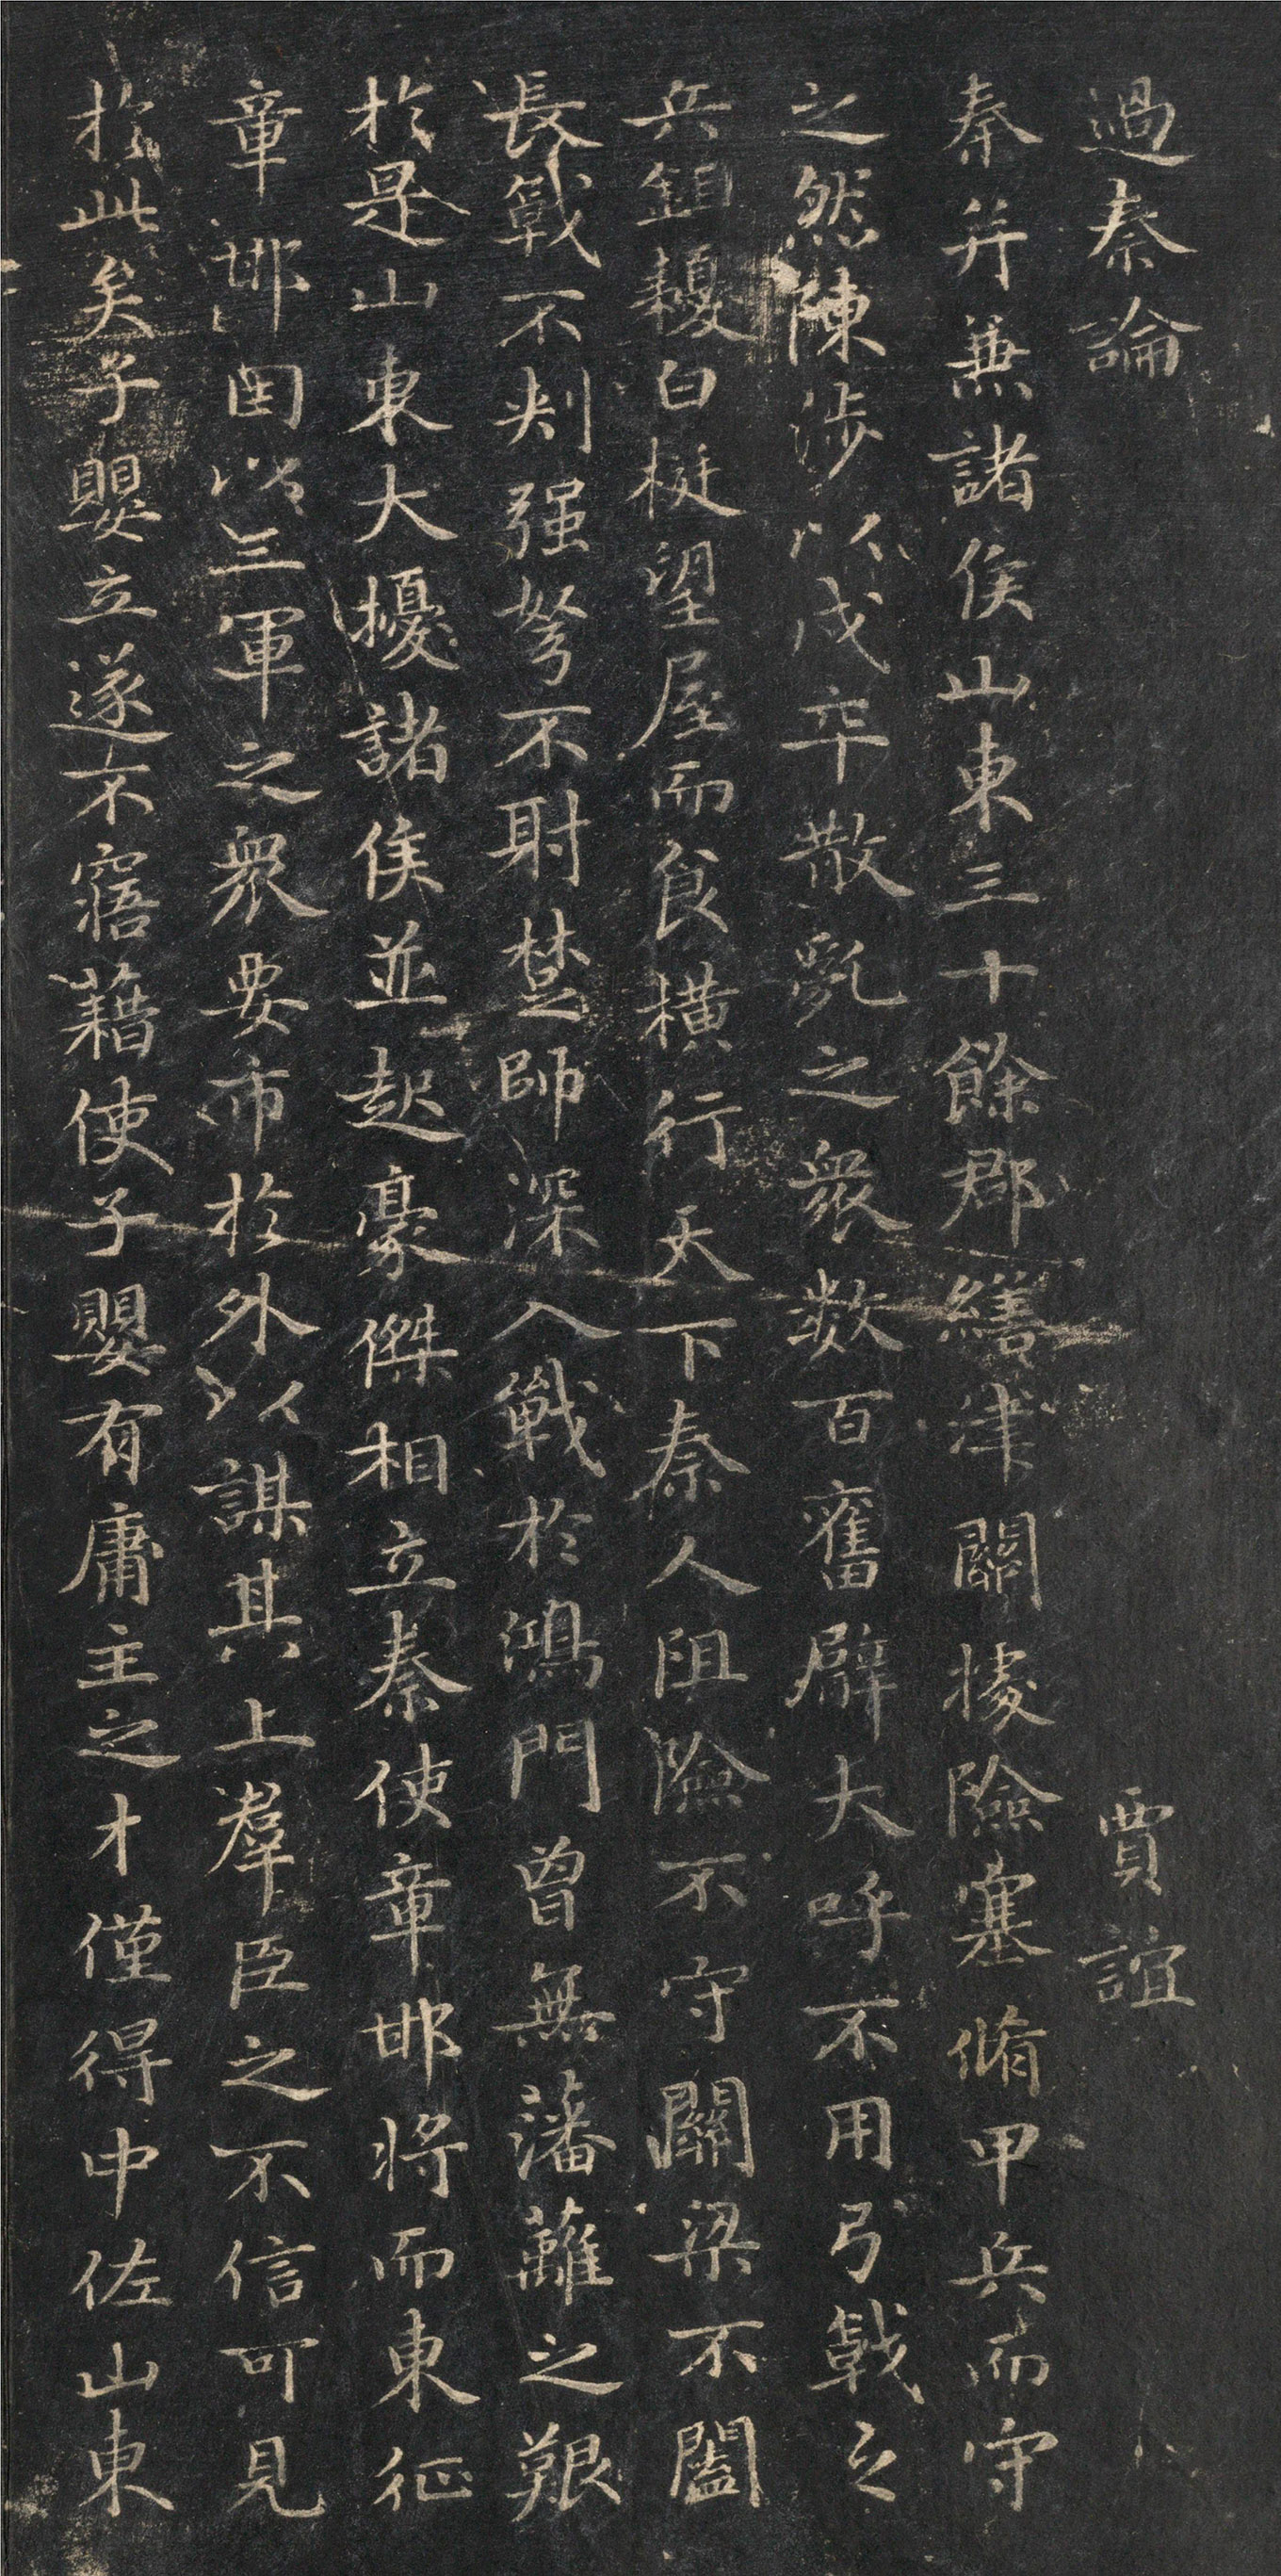 過秦論 賈誼
秦并兼諸侯山東三十餘郡繕津關據險塞脩甲兵而守
之然陳涉以戍卒散亂之衆數百奮臂大呼不用弓戟之
兵鉏耰白梃望屋而食橫行天下秦人阻險不守關梁不闔
長戟不刺强弩不射楚師深入戰於鴻門曾無藩蘺之艱
於是山東大擾諸侯並起豪傑相立秦使章邯將而東征
章邯因以三軍之衆要市於外以謀其上羣臣之不信可見
於此矣子嬰立遂不寤藉使子嬰有庸主之才僅得中佐山東